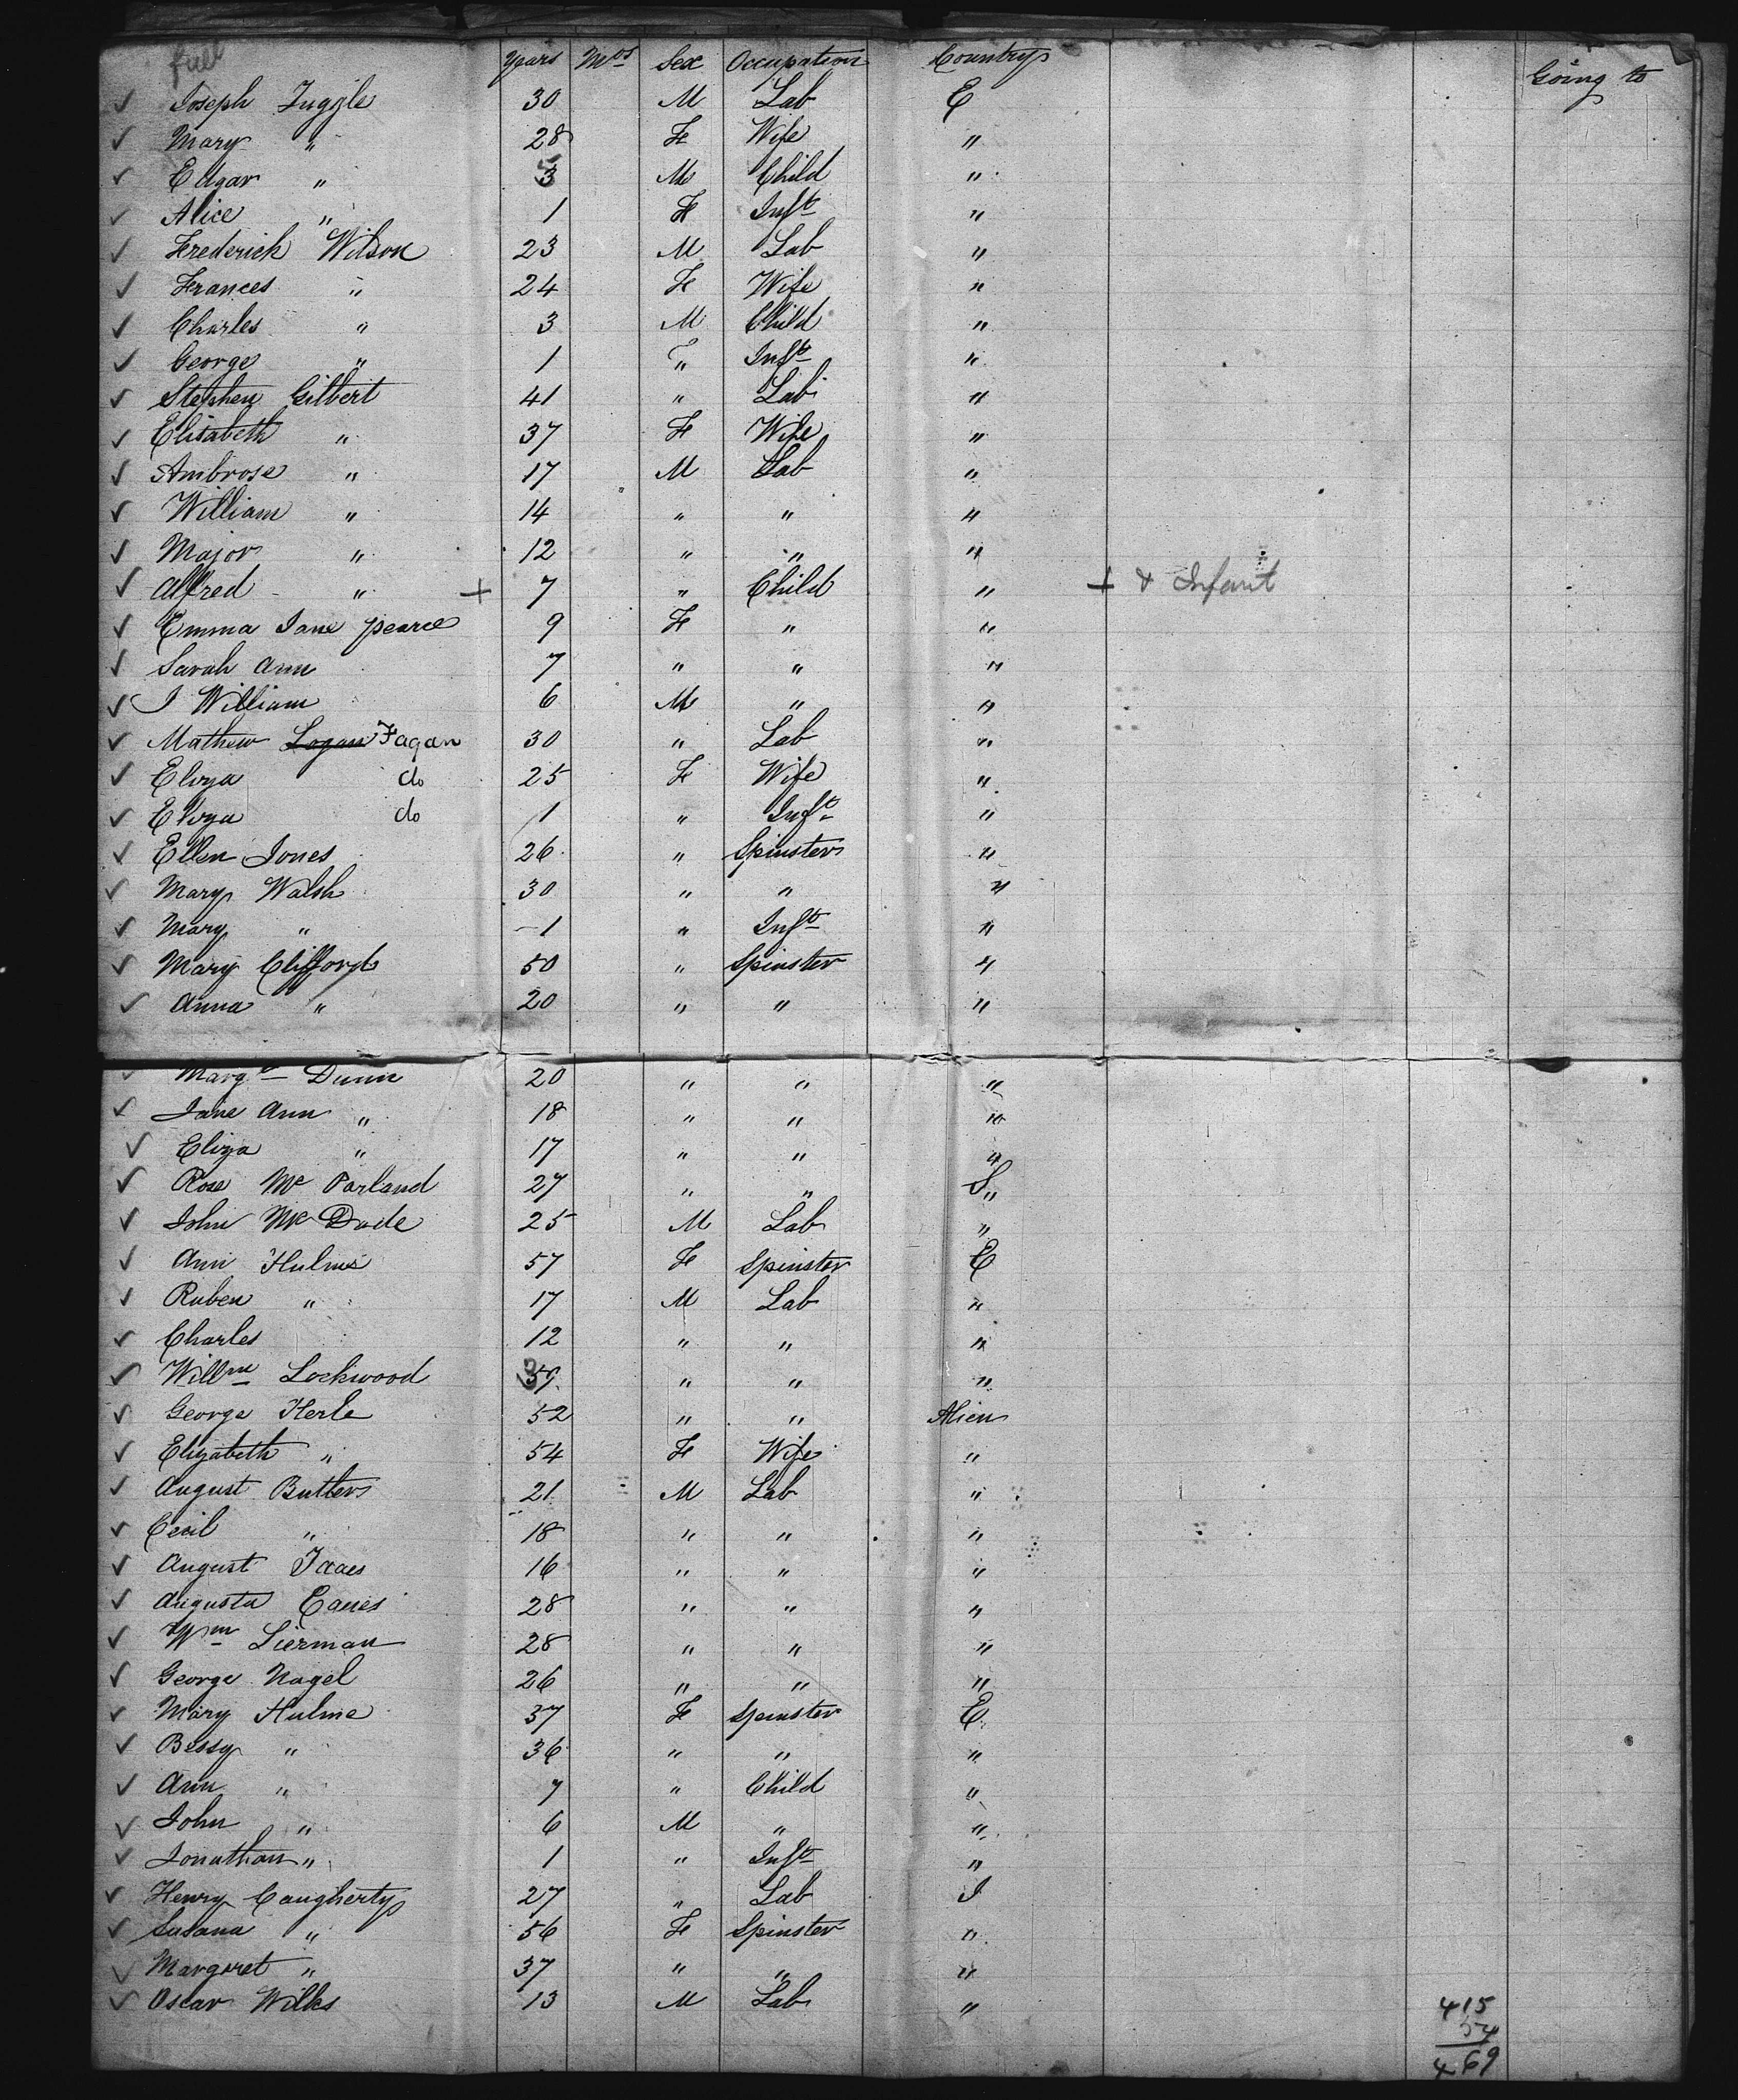 full
Years Mos Sex Occupation Country Going to
✓ Joseph Tuggle 30 M Lab E
✓ Mary " 28 Fe Wife "
✓ Edgar " 3 M Child "
✓ Alice " 1 Fe Inft "
✓ Frederick Wilson 23 M Lab "
✓ Frances " 24 Fe Wife "
✓ Charles " 3 M Child "
✓ George " 1 " Inft "
✓ Stephen Gilbert 41 " Lab "
✓ Elisabeth " 37 Fe Wife "
✓ Ambrose " 17 M Lab "
✓ William " 14 " " "
✓ Major " 12 " " "
✓ Alfred " + 7 " Child " + & Infant
✓ Emma Jane Pearce 9 Fe " "
✓ Sarah Ann 7 " " "
✓ J William 6 M " "
✓ Mathew Logan Fagan 30 " Lab "
✓ Eliza do 25 Fe Wife "
✓ Eliza do 1 " Inft "
✓ Ellen Jones 26 " Spinster "
✓ Mary Walsh 30 " " "
✓ Mary " 1 " Inft "
✓ Mary Clifford 50 " Spinster "
✓ Anna " 20 " " "
✓ Margt Dunn 20 " " "
✓ Jane Ann " 18 " " "
✓ Eliza " 17 " " "
✓ Rose Mc Parland 27 " " S "
✓ John Mc Dade 25 M Lab "
✓ Ann Hulme 57 Fe Spinster E
✓ Ruben " 17 M Lab "
✓ Charles 12 " " "
✓ Willm Lockwood 39 " " "
✓ George Herle 52 " " Alien
✓ Elizabeth " 54 Fe Wife "
✓ August Butters 21 M Lab "
✓ Cecil " 18 " " "
✓ August 16 " " "
✓ Augusta 28 " " "
✓ Wm Lierman 28 " " "
✓ George Nagel 26 " " "
✓ Mary Hulme 37 Fe Spinster E
✓ Bessy " 36 " " "
✓ Ann " 7 " Child "
✓ John " 6 M " "
✓ Jonathan " 1 " Inft "
✓ Henry Caugherty 27 " Lab I
✓ Susana " 56 Fe Spinster "
✓ Margaret " 37 " " "
✓ Oscar Wilks 13 M Lab "
415
54
469